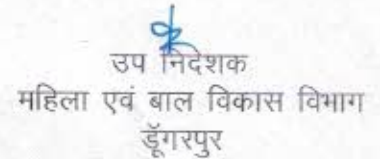 उप निदेशक
महिला एवं बाल विकास विभाग
डूॅंगरपुर